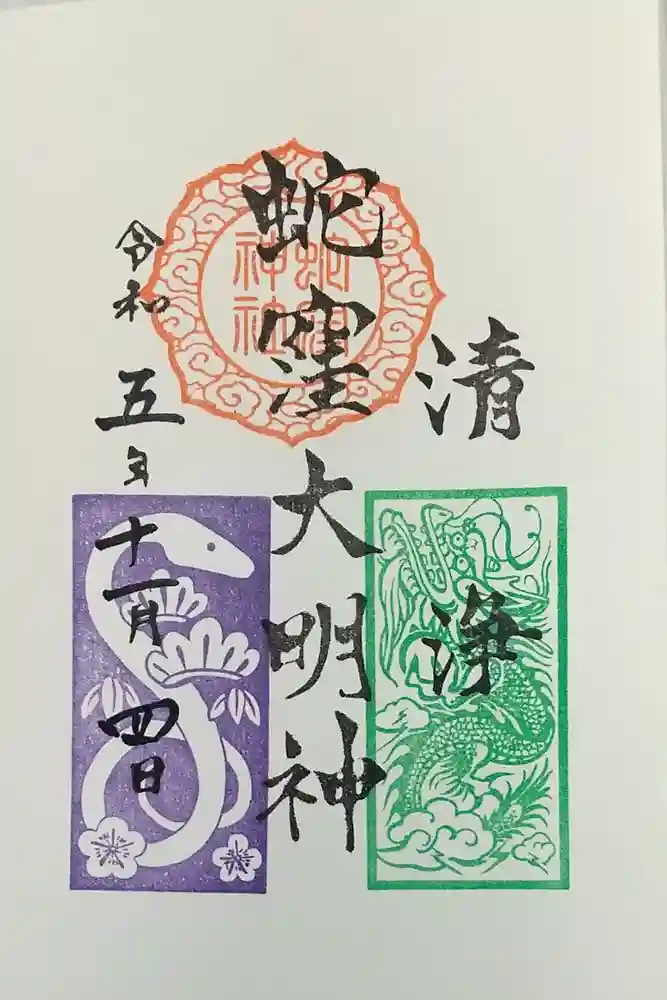 清浄
蛇窪大明神
蛇窪神社
令和五年十一月四日